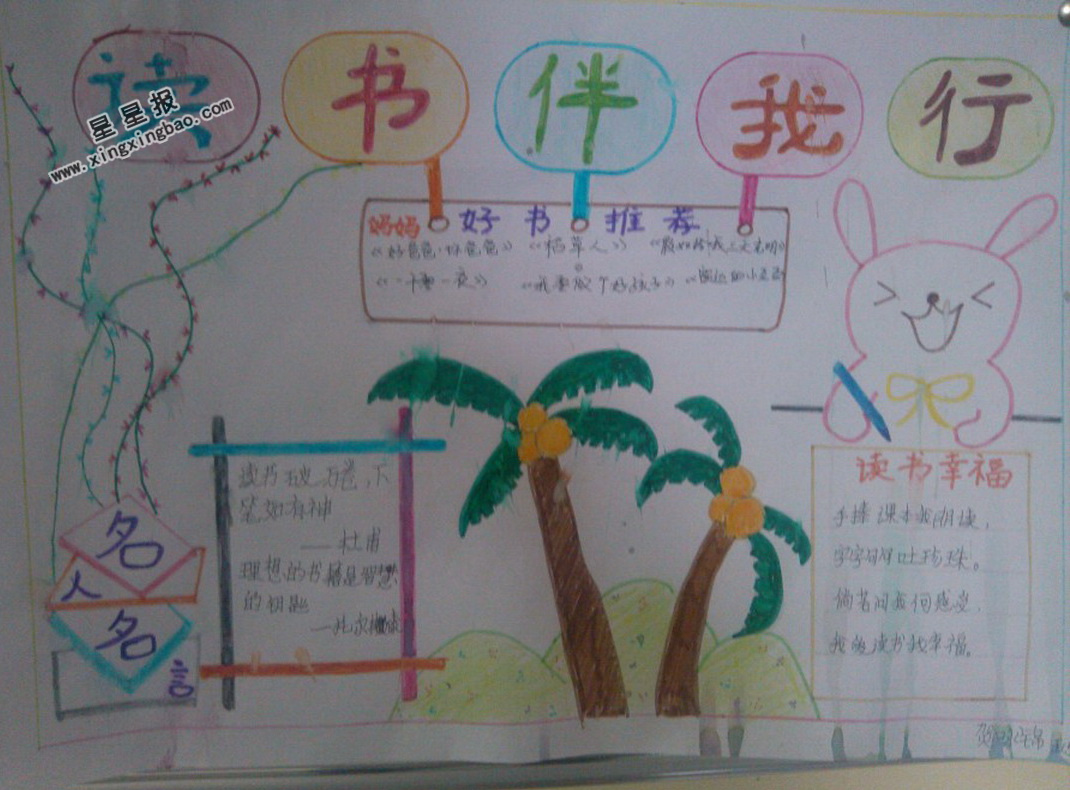 读书伴我行
星星报
www.xingxingbao.com
妈妈好书推荐
《好爸爸·坏爸爸》 《稻草人》 《假如给我三天光明》
《一千零一夜》 《我要做个好孩子》
读书破万卷,下
笔如有神
——杜甫
理想的书籍是智慧
的钥匙
名
人
名
言
读书幸福
手捧课本我朗读,
字字句句吐珍珠。
倘若问我何感受,
我的读书我幸福。